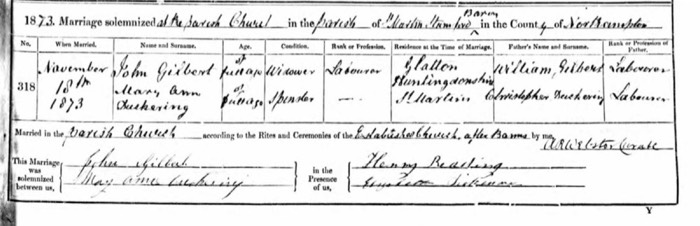 1873. Marriage solemnized at the Parish Church in the parish of St Martin Stamford Baron in the County of Northampton
When Married. Name and Surname. Age. Condition. Rank or Profession. Residence at the Time of Marriage. Father's Name and Surname. Rank or Profession of Father.
318 November 18th 1873 John Gilbert of full age Widower Labourer Glatton Huntingdonshire William Gilbert Labourer
Mary Ann of full age Spinster — St Martin Christopher Labourer
Married in the Parish Church according to the Rites and Ceremonies of the Established Church, after Banns by me,
Webster Curate
This Marriage was solemnized between us, John Gilbert
Mary Ann
in the Presence of us, Henry
Y